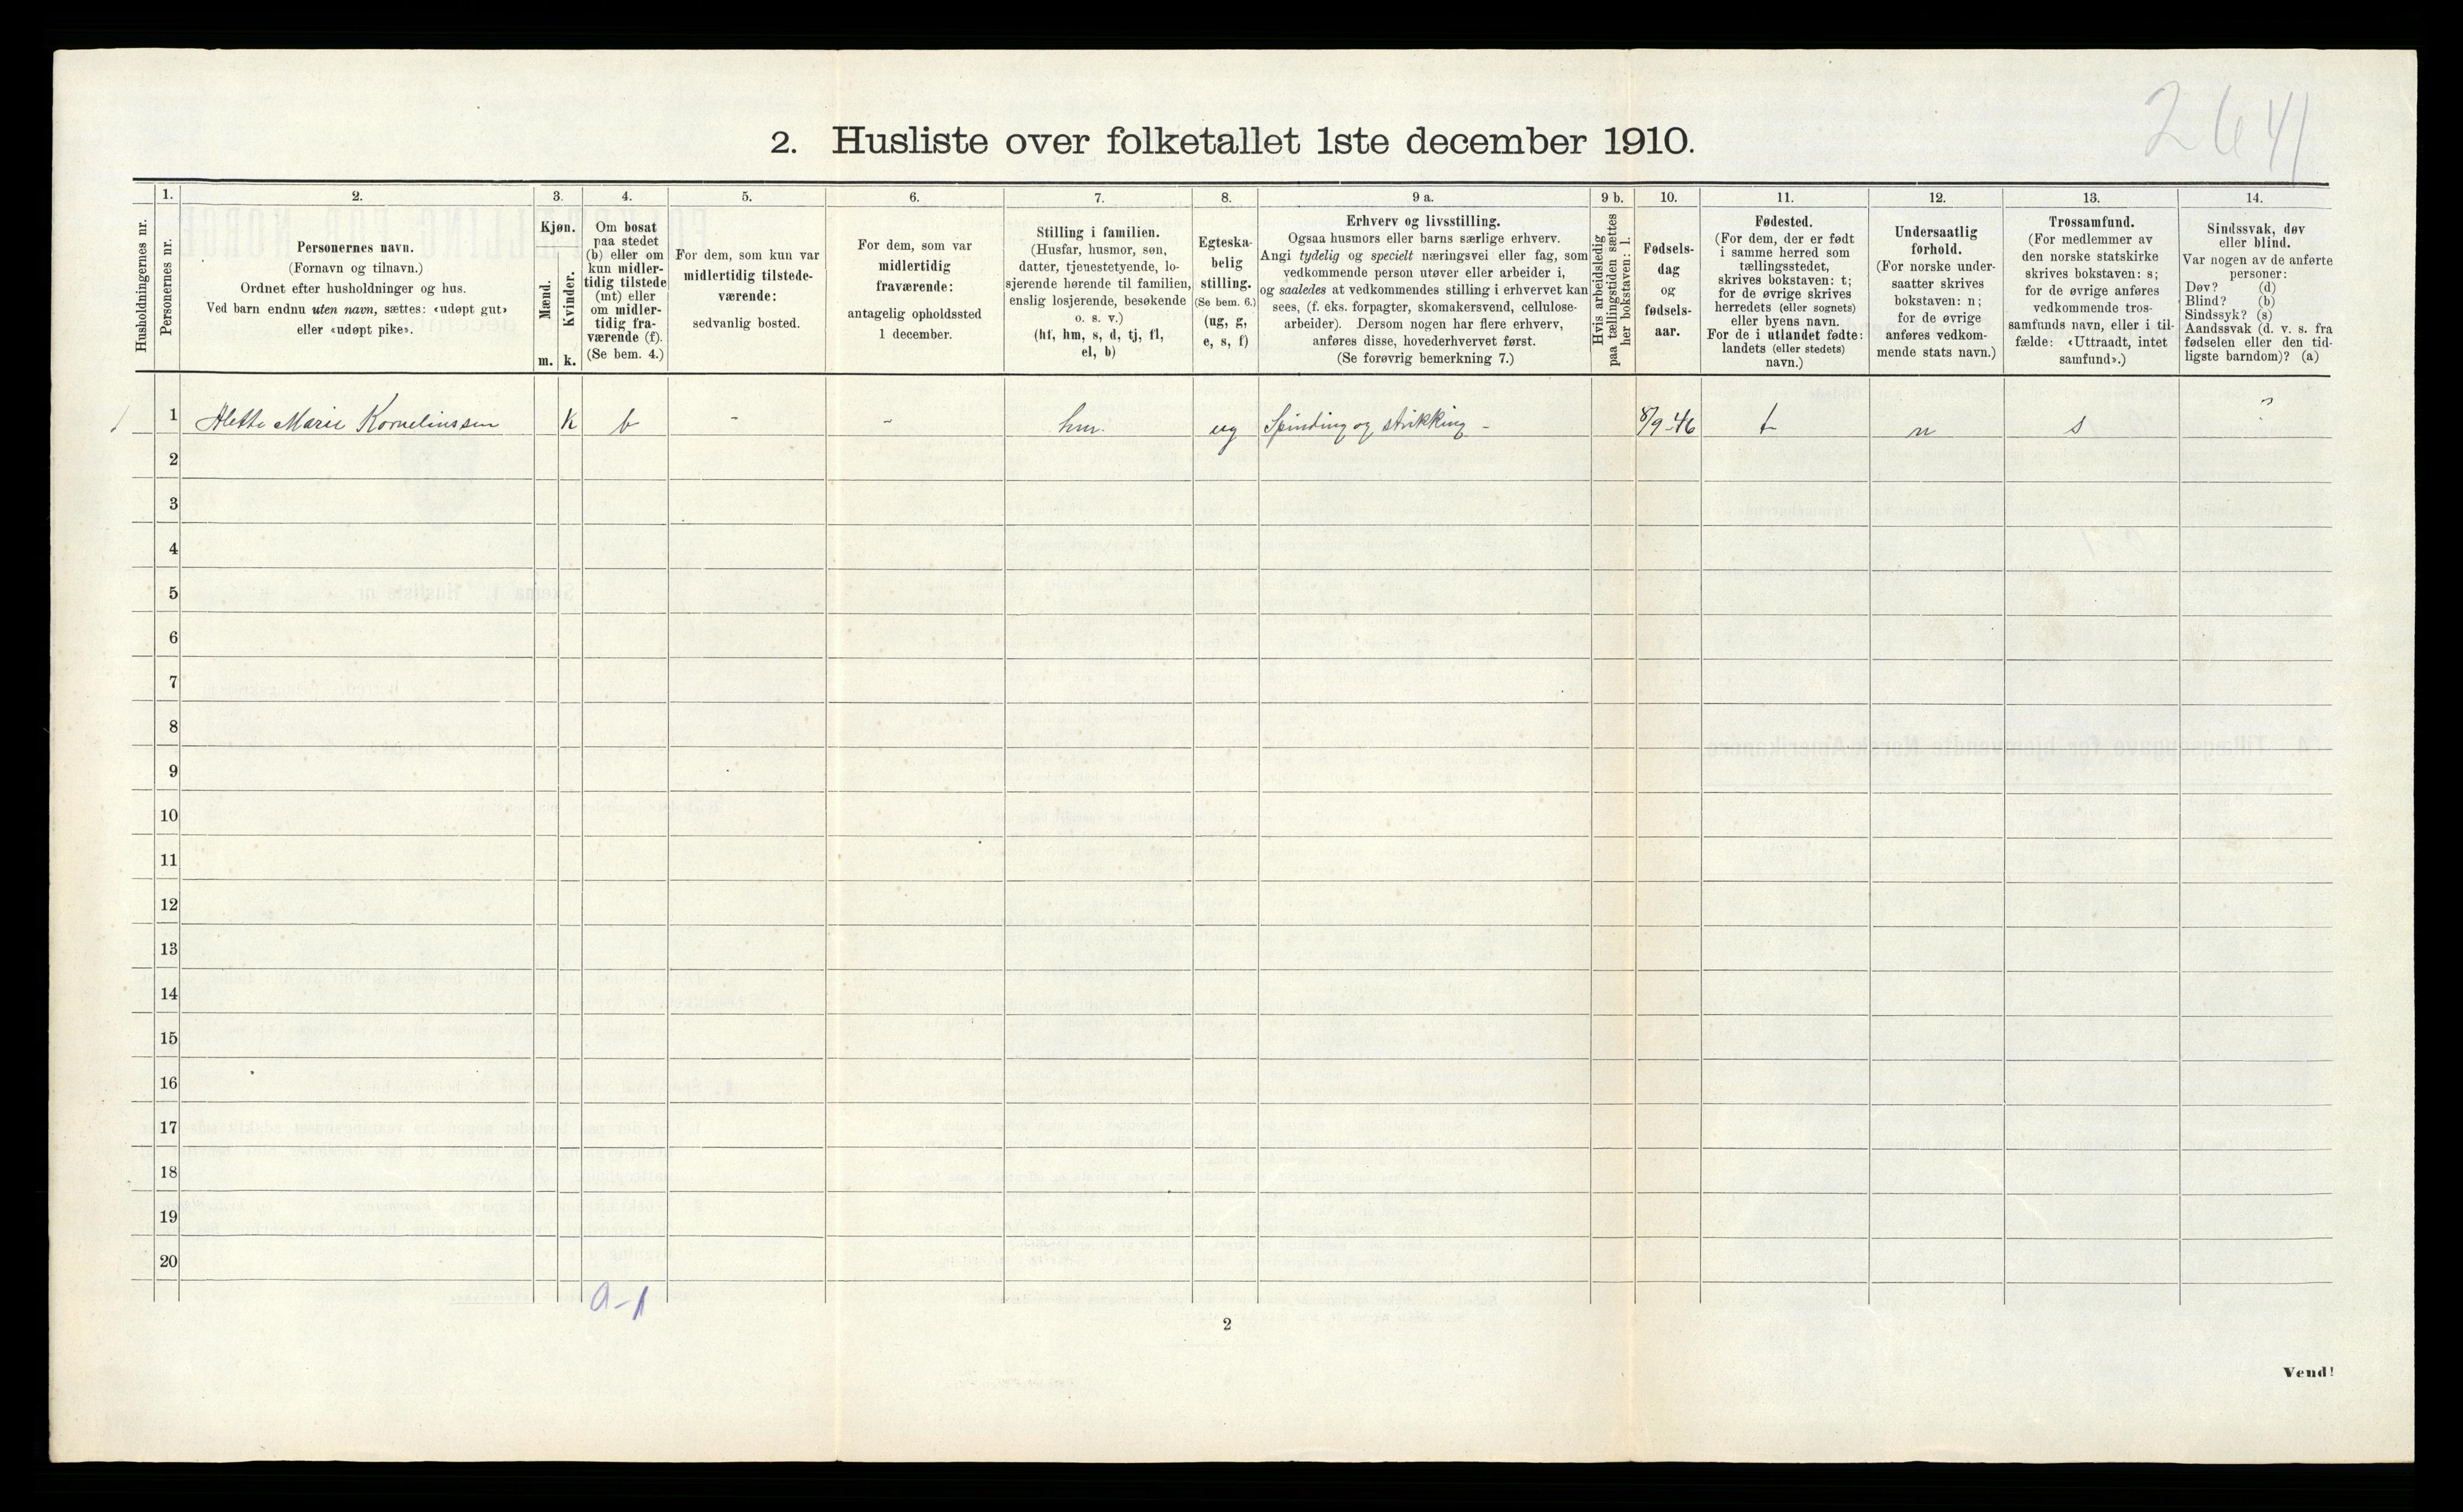 2641
2. Husliste over folketallet 1ste december 1910.
Husholdningernes nr.
1.
Personernes nr.
2.
Personernes navn.
(Fornavn og tilnavn.)
Ordnet efter husholdninger og hus.
Ved barn endnu uten navn, sættes: «udøpt gut»
eller «udøpt pike».
3.
Kjøn.
Mænd.
Kvinder.
m. k.
4.
Om bosat
paa stedet
(b) eller om
kun midler-
tidig tilstede
(mt) eller
om midler-
tidig fra-
værende (f).
(Se bem. 4.)
5.
For dem, som kun var
midlertidig tilstede-
værende:
sedvanlig bosted.
6.
For dem, som var
midlertidig
fraværende:
antagelig opholdssted
1 december.
7.
Stilling i familien.
(Husfar, husmor, søn,
datter, tjenestetyende, lo-
sjerende hørende til familien,
enslig losjerende, besøkende
o. s. v.)
(hf, hm, s, d, tj, fl,
el, b)
8.
Egteska-
belig
stilling.
(Se bem. 6.)
(ug, g,
e, s, f)
9 a.
Erhverv og livsstilling.
Ogsaa husmors eller barns særlige erhverv.
Angi tydelig og specielt næringsvei eller fag, som
vedkommende person utøver eller arbeider i,
og saaledes at vedkommendes stilling i erhvervet kan
sees, (f. eks. forpagter, skomakersvend, cellulose-
arbeider). Dersom nogen har flere erhverv,
anføres disse, hovederhvervet først.
(Se forøvrig bemerkning 7.)
9 b.
Hvis arbeidsledig
paa tællingstiden sættes
her bokstaven: l.
10.
Fødsels-
dag
og
fødsels-
aar.
11.
Fødested.
(For dem, der er født
i samme herred som
tællingsstedet,
skrives bokstaven: t;
for de øvrige skrives
herredets (eller sognets)
eller byens navn.
For de i utlandet fødte:
landets (eller stedets)
navn.)
12.
Undersaatlig
forhold.
(For norske under-
saatter skrives
bokstaven: n;
for de øvrige
anføres vedkom-
mende stats navn.)
13.
Trossamfund.
(For medlemmer av
den norske statskirke
skrives bokstaven: s;
for de øvrige anføres
vedkommende tros-
samfunds navn, eller i til-
fælde: «Uttraadt, intet
samfund».)
14.
Sindssvak, døv
eller blind.
Var nogen av de anførte
personer:
Døv? (d)
Blind? (b)
Sindssyk? (s)
Aandssvak (d. v. s. fra
fødselen eller den tid-
ligste barndom)? (a)
1 1 Alette Marie Kornelinssen K b - - hm. ug Spinding og strikking - 8/9-46 t n s ?
2
3
4
5
6
7
8
9
10
11
12
13
14
15
16
17
18
19
20
0-1
2
Vend!